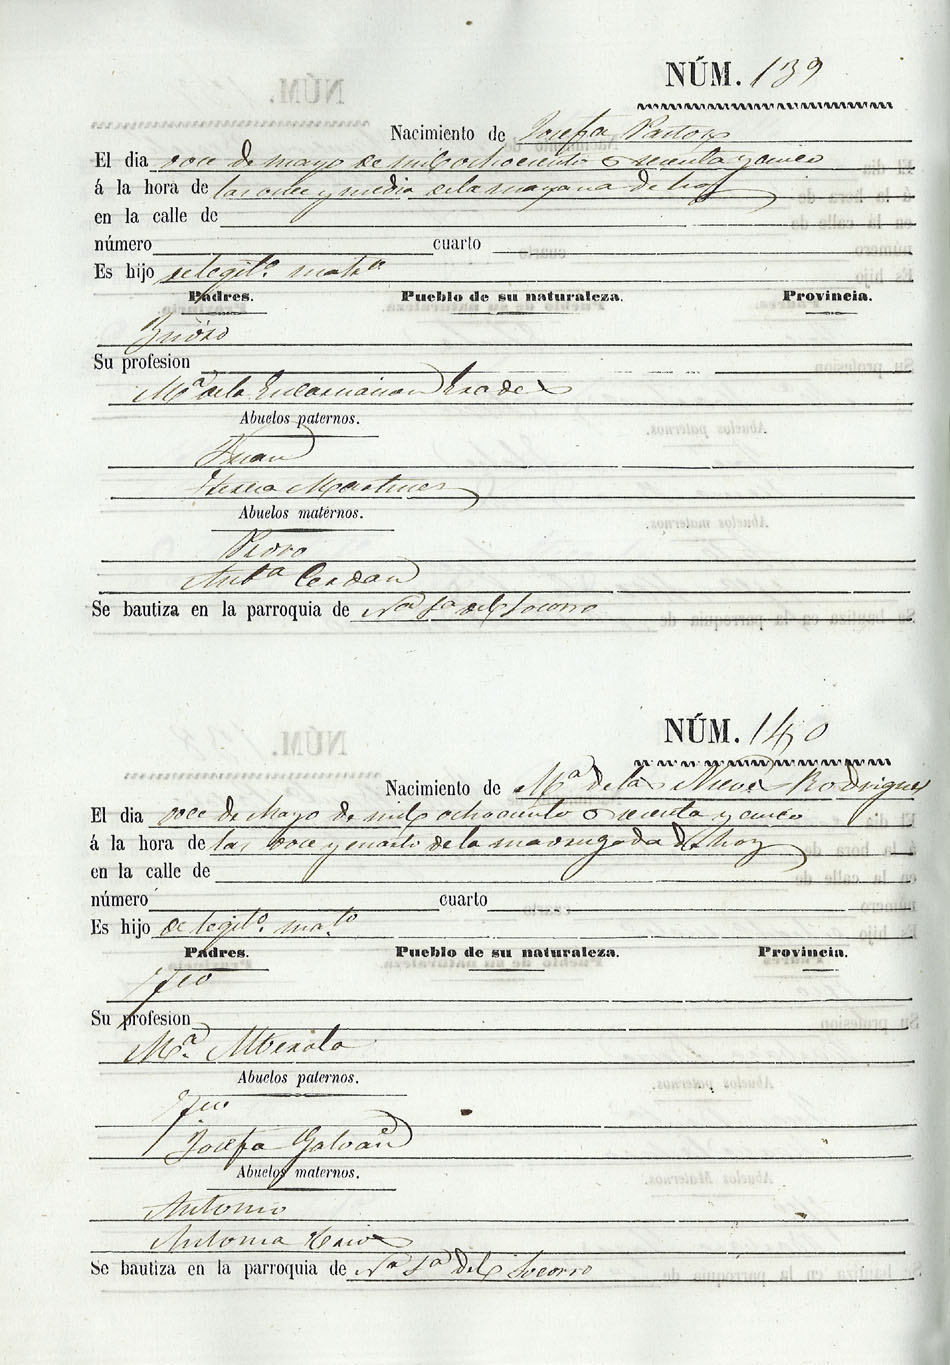 NÚM. 139
Nacimiento de Josefa Pastor
El dia doce de mayo de mil ochociento sesenta y cinco
á la hora de las once y media de la mañana de hoy
en la calle de
número cuarto
Es hijo de legit.º mat.º
Padres. Pueblo de su naturaleza. Provincia.
Ysidro
Su profesion
M.ª de la Encarnacion
Abuelos paternos.
Juan
Teresa Martinez
Abuelos maternos.
Pedro
Ant.ª Cerdan
Se bautiza en la parroquia de N.ª S.ª del Socorro
NÚM. 140
Nacimiento de M.ª de las Nieves Rodriguez
El dia doce de Mayo de mil ochociento sesenta y cinco
á la hora de las doce y cuarto de la madrugada de hoy
en la calle de
número cuarto
Es hijo de legit.º mat.º
Padres. Pueblo de su naturaleza. Provincia.
Fco
Su profesion
M.ª Alberola
Abuelos paternos.
Fco
Josefa Galvañ
Abuelos maternos.
Antonio
Antonia
Se bautiza en la parroquia de N.ª S.ª del Socorro